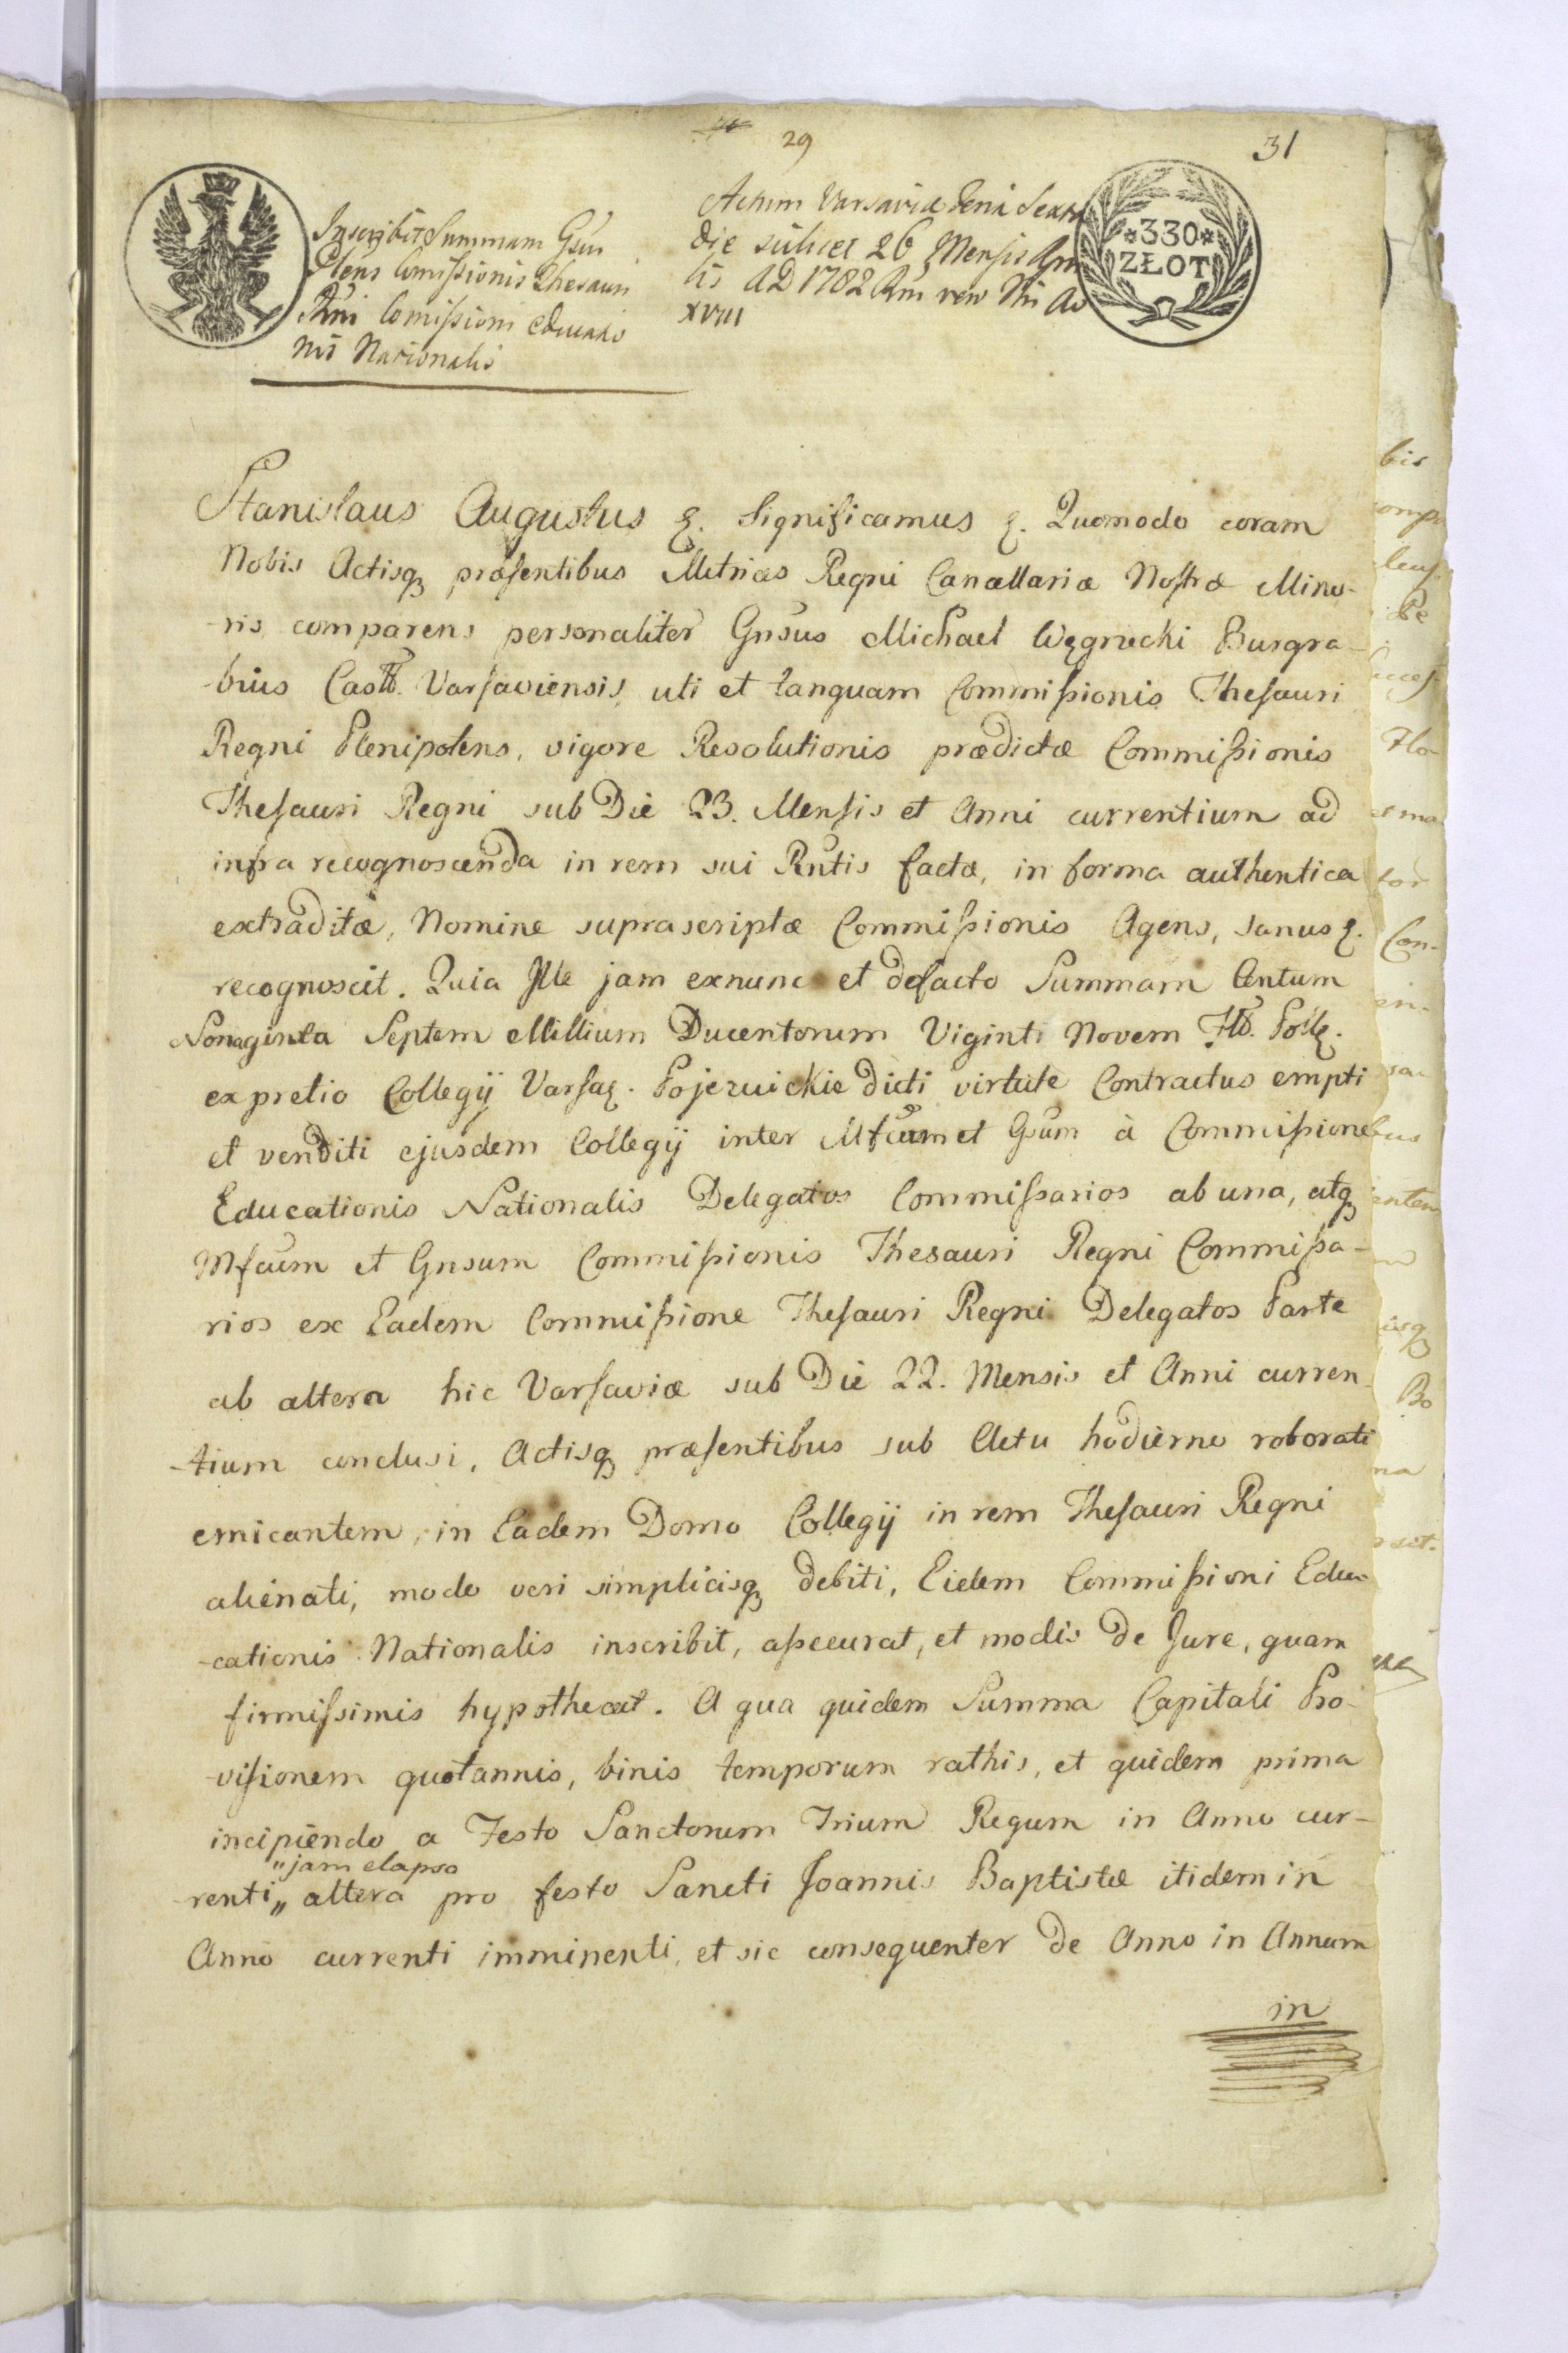 29
31
Inscribit Summam Gsus
Plens Comissionis Thesauri
Rni Comissioni Educatio
nis Nationalis
Actum Varsaviæ Feria Sexta
die scilicet 26 Mensis Apri
lis AD 1782 Rni vero Nri Ao
XVIII
*330*
ZŁOT
Stanislaus Augustus &. Significamus &. Quomodo coram
Nobis Actisq præsentibus Metrices Regni Cancellariæ Nostræ Mino-
-ris comparens personaliter Gnsus Michael Węgrzecki Burgra-
-bius Castr. Varsaviensis, uti et tanquam Commissionis Thesauri
Regni Plenipotens, vigore Resolutionis prædictæ Commissionis
Thesauri Regni sub Die 23. Mensis et Anni currentium ad
infra recognoscenda in rem sui Rntis factæ, in forma authentica
extraditæ, Nomine suprascriptæ Commissionis Agens, sanus &.
recognoscit. Quia Ille jam exnunc et defacto Summam Centum
Nonaginta Septem Millium Ducentorum Viginti Novem Flor. Poll.
ex pretio Collegij Varsa. Pojezuickie dicti virtute Contractus empti
et venditi ejusdem Collegij inter Mfcum et Gsum à Commissione
Educationis Nationalis Delegatos Commissarios ab una, atq
Mfcum et Gnsum Commissionis Thesauri Regni Commissa-
rios ex Eadem Commissione Thesauri Regni Delegatos Parte
ab altera hic Varsaviæ sub Die 22. Mensis et Anni curren
-tium conclusi, Actisq præsentibus sub Actu hodierno roborati
emicantem, in Eadem Domo Collegij in rem Thesauri Regni
alienati, modo veri simplicisq debiti, Eidem Commissioni Edu-
-cationis Nationalis inscribit, assecurat, et modis de Jure, quam
firmissimis hypothecat. A qua quidem Summa Capitali Pro-
-visionem quotannis, binis temporum rathis, et quidem prima
incipiendo a Festo Sanctorum Trium Regum in Anno cur-
"jam elapso
-renti,, altera pro festo Sancti Joannis Baptistæ itidem in
Anno currenti imminenti, et sic consequenter de Anno in Annum
in